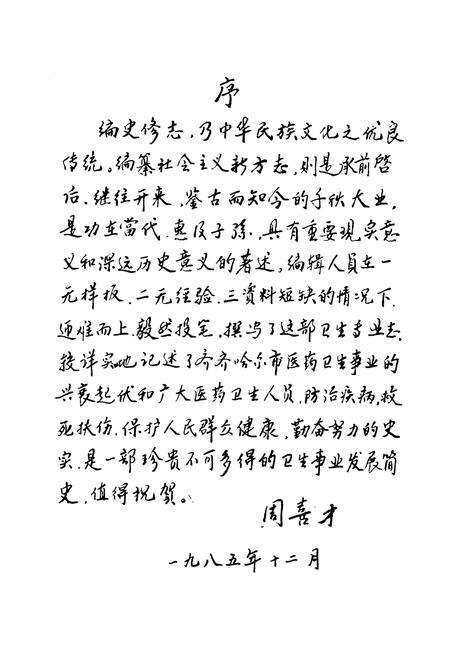 序
编史修志，乃中华民族文化之优良
传统。编纂社会主义新方志，则是承前启
后、继往开来，鉴古而知今的千秋大业，
是功在當代，惠及子孫，具有重要现实意
义和深远历史意义的著述，编辑人员在一
无样板，二无经验，三资料短缺的情况下，
迎难而上，毅然投笔，撰写了这部卫生专业志，
较详实地记述了齐齐哈尔市医药卫生事业的
兴衰起伏和广大医药卫生人员，防治疾病，救
死扶伤，保护人民群众健康，勤奋努力的史
实，是一部珍贵不可多得的卫生事业发展简
史，值得祝贺。
周喜才
一九八五年十二月